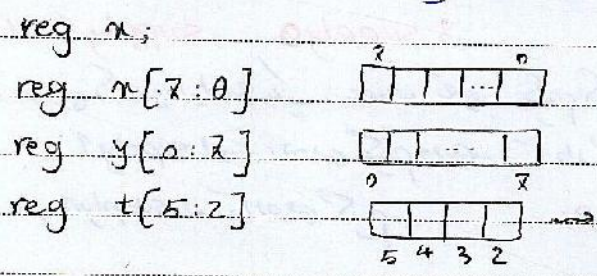 reg x;
reg x[7:0] 7 ... 0
reg y[0:7] ... 0 7
reg t[5:2] 5 4 3 2